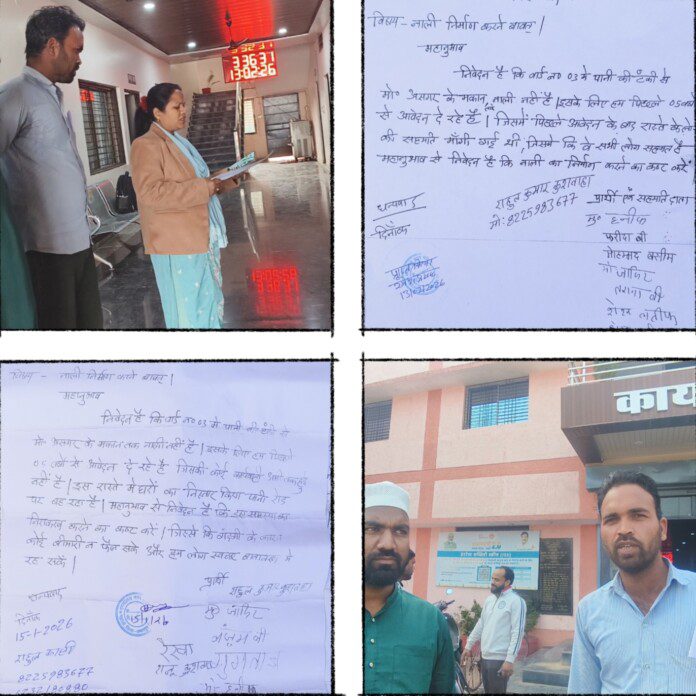 33:37
13:02:26
विषय - नाली निर्माण करने बाबत्।
महानुभाव
निवेदन है कि वार्ड न० 03 में पानी की टंकी से
मो० असगर के मकान तक नाली नहीं है। इसके लिए हम पिछले 05 वर्षो
से आवेदन दे रहे हैं। जिसमें पिछले आवेदन के बाद रास्ते के लोगो
की सहमति माँगी गई थी, जिसमे कि वे सभी लोग सहमत है
महानुभाव से निवेदन है कि नाली का निर्माण करने का कष्ट करें
धन्यवाद
राहुल कुमार कुशवाहा
मो: 8225983677
दिनाँक
प्रार्थी एवं सहमति दाता
मु० हनीफ
फरीदा बी
मोहम्मद वसीम
मो जाकिर
शेख लतीफ
विषय - नाली निर्माण करने बाबत्।
महानुभाव
निवेदन है कि वार्ड न० 03 में पानी की टंकी से
मो० असगर के मकान तक नाली नहीं है। इसके लिए हम पिछले
05 वर्षो से आवेदन दे रहे हैं, जिसकी कोई
नहीं है। इस रास्ते में घरों का निस्तार पानी रोड
पर बह रहा है। महानुभाव से निवेदन है कि इस समस्या का
निराकरण करने का कष्ट करें। जिससे कि गंदगी के कारण
कोई बीमारी न फैल सके और हम लोग स्वस्थ वातावरण में
रह सकें।
धन्यवाद
प्रार्थी
राहुल कुमार कुशवाहा
दिनाँक
15-1-2026
मु० जाकिर
अंजुम बी
रेखा
8225983677
काय